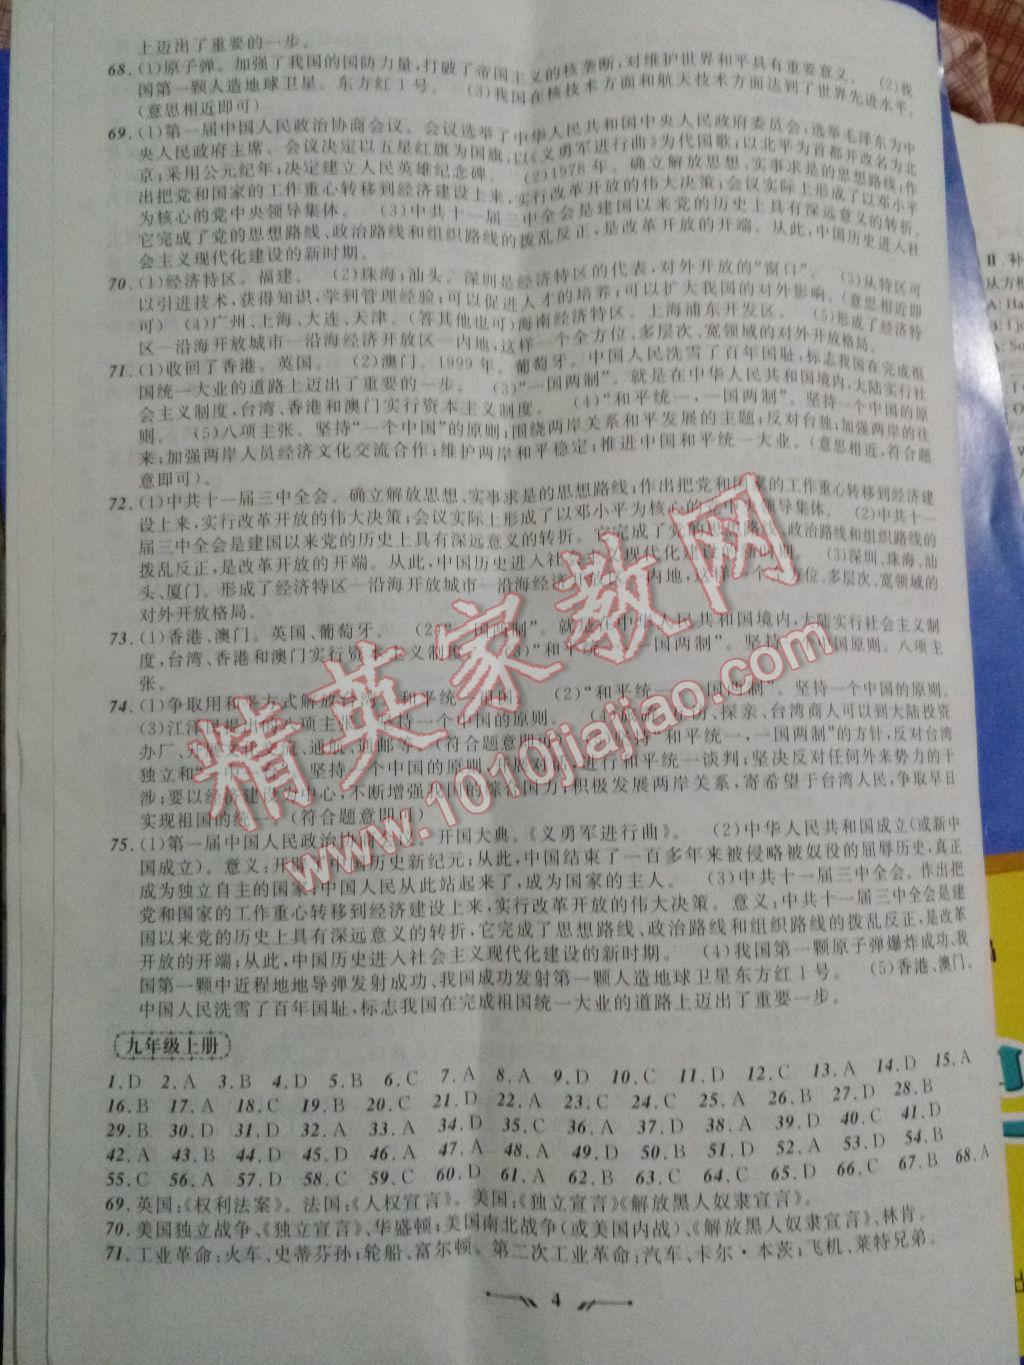 上迈出了重要的一步。
68. (1)原子弹。加强了我国的国防力量,打破了帝国主义的核垄断,对维护世界和平具有重要意义。 (2)我
国第一颗人造地球卫星。东方红1号。 (3)我国在核技术方面和航天技术方面达到了世界先进水平。
(意思相近即可)
69. (1)第一届中国人民政治协商会议。会议选举了中华人民共和国中央人民政府委员会,选举毛泽东为中
央人民政府主席。会议决定以五星红旗为国旗,以《义勇军进行曲》为代国歌;以北平为首都并改名为北
京;采用公元纪年;决定建立人民英雄纪念碑。 (2)1978年。确立解放思想、实事求是的思想路线;作
出把党和国家的工作重心转移到经济建设上来,实行改革开放的伟大决策;会议实际上形成了以邓小平
为核心的党中央领导集体。 (3)中共十一届三中全会是建国以来党的历史上具有深远意义的转折。
它完成了党的思想路线、政治路线和组织路线的拨乱反正,是改革开放的开端。从此,中国历史进入社
会主义现代化建设的新时期。
70. (1)经济特区。福建。 (2)珠海;汕头。深圳是经济特区的代表,对外开放的“窗口”。 (3)从特区可
以引进技术,获得知识,学到管理经验;可以促进人才的培养;可以扩大我国的对外影响。(意思相近即
可) (4)广州、上海、大连、天津。(答其他也可)海南经济特区。上海浦东开发区。 (5)形成了经济特
区—沿海开放城市—沿海经济开放区—内地,这样一个全方位、多层次、宽领域的对外开放格局。
71. (1)收回了香港、英国。 (2)澳门。1999年。葡萄牙。中国人民洗雪了百年国耻,标志我国在完成祖
国统一大业的道路上迈出了重要的一步。 (3)“一国两制”。就是在中华人民共和国境内,大陆实行社
会主义制度,台湾、香港和澳门实行资本主义制度。 (4)“和平统一,一国两制”。坚持一个中国的原
则。 (5)八项主张。坚持“一个中国”的原则;围绕两岸关系和平发展的主题;反对台独;加强两岸的往
来;加强两岸人员经济文化交流合作;维护两岸和平稳定;推进中国和平统一大业。(意思相近,符合题
意即可)。
72. (1)中共十一届三中全会。确立解放思想、实事求是的思想路线;作出把党和国家的工作重心转移到经济建
设上来,实行改革开放的伟大决策;会议实际上形成了以邓小平为核心的党中央领导集体。 (2)中共十一
届三中全会是建国以来党的历史上具有深远意义的转折。它完成了党的思想路线、政治路线和组织路线的
拨乱反正,是改革开放的开端。从此,中国历史进入社会主义现代化建设的新时期。 (3)深圳、珠海、汕
头、厦门。形成了经济特区—沿海开放城市—沿海经济开放区—内地,这样一个全方位、多层次、宽领域的
对外开放格局。
73. (1)香港、澳门。英国、葡萄牙。 (2)“一国两制”。就是在中华人民共和国境内,大陆实行社会主义制
度,台湾、香港和澳门实行资本主义制度。 (3)“和平统一,一国两制”。坚持一个中国原则。八项主
张。
74. (1)争取用和平方式解放台湾。和平统一祖国。 (2)“和平统一,一国两制”。坚持一个中国的原则。
(3)江泽民提出的八项主张。坚持一个中国的原则。 (4)旅游、探访、探亲、台湾商人可以到大陆投资
办厂、开展文化交流、通航、通邮等。(符合题意即可) 和平统一,一国两制”的方针,反对台湾
独立和 坚持一个中国的原则,扩大对话,进行和平统一谈判;坚决反对任何外来势力的干
涉;要以经济建设为中心,不断增强我国的综合国力;积极发展两岸关系,寄希望于台湾人民,争取早日
实现祖国的统一。(符合题意即可)
75. (1)第一届中国人民政治协商会议。开国大典。《义勇军进行曲》。 (2)中华人民共和国成立(或新中
国成立)。意义:开辟了中国历史新纪元;从此,中国结束了一百多年来被侵略被奴役的屈辱历史,真正
成为独立自主的国家,中国人民从此站起来了,成为国家的主人。 (3)中共十一届三中全会。作出把
党和国家的工作重心转移到经济建设上来,实行改革开放的伟大决策。意义:中共十一届三中全会是建
国以来党的历史上具有深远意义的转折,它完成了思想路线、政治路线和组织路线的拨乱反正,是改革
开放的开端;从此,中国历史进入社会主义现代化建设的新时期。 (4)我国第一颗原子弹爆炸成功、我
国第一颗中近程地地导弹发射成功、我国成功发射第一颗人造地球卫星东方红1号。 (5)香港、澳门。
中国人民洗雪了百年国耻,标志我国在完成祖国统一大业的道路上迈出了重要一步。
九年级上册
1. D 2. A 3. B 4. D 5. B 6. C 7. A 8. A 9. D 10. C 11. D 12. C 13. A 14. D 15. A
16. B 17. A 18. C 19. B 20. C 21. D 22. A 23. C 24. C 25. A 26. B 27. D 28. B
29. B 30. D 31. D 32. A 33. A 34. D 35. C 36. A 37. D 38. A 39. D 40. C 41. D
42. A 43. B 44. D 45. D 46. A 47. A 48. A 49. D 50. B 51. D 52. A 53. D 54. B
55. C 56. A 57. D 58. C 59. C 60. D 61. A 62. B 63. C 64. C 65. D 66. C 67. B 68. A
69. 英国:《权利法案》。法国:《人权宣言》。美国:《独立宣言》《解放黑人奴隶宣言》。
70. 美国独立战争、《独立宣言》、华盛顿;美国南北战争(或美国内战)、《解放黑人奴隶宣言》、林肯。
71. 工业革命:火车、史蒂芬孙;轮船、富尔顿。第二次工业革命:汽车、卡尔·本茨;飞机、莱特兄弟。
4
精英家教网
www.1010jiajiao.com
II. 补
从方框
A: Ha